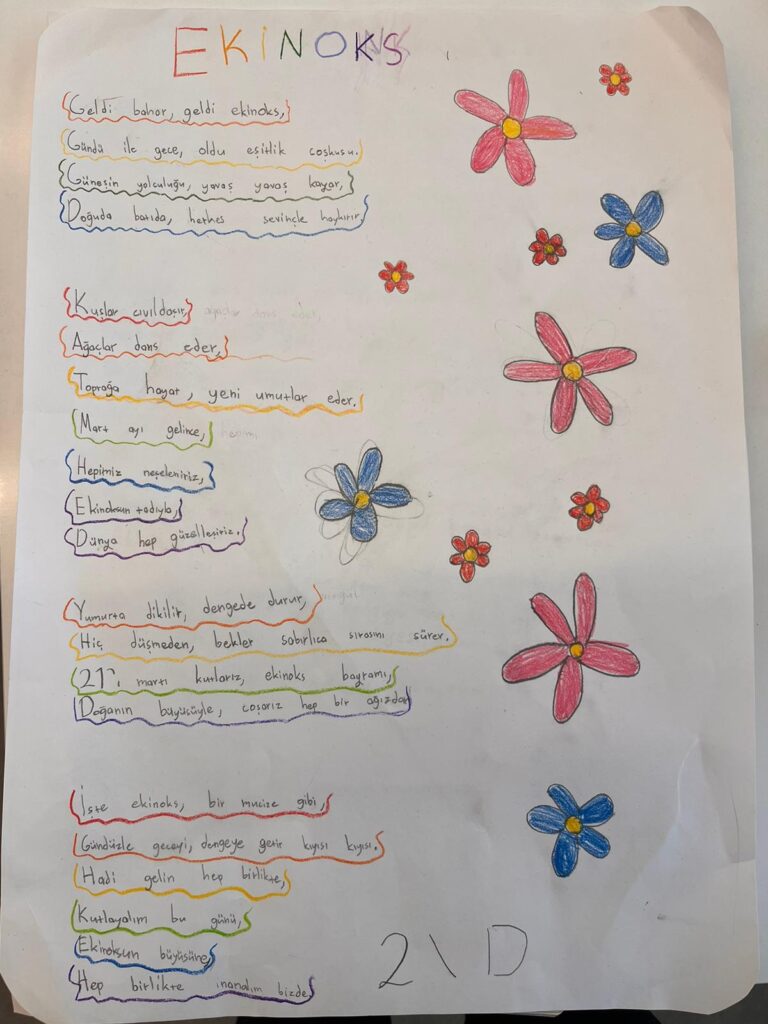 EKİNOKS
Geldi bahar, geldi ekinoks,
Gündü ile gece, oldu eşitlik coşkusu.
Güneşin yolculuğu, yavaş yavaş kayar,
Doğuda batıda, herkes sevinçle haykırır,
Kuşlar cıvıldaşır,
Ağaçlar dans eder,
Toprağa hayat, yeni umutlar eder.
Mart ayı gelince,
Hepimiz neşeleniriz,
Ekinoksun tadıyla,
Dünya hep güzelleşiriz.
Yumurta dikilir, dengede durur,
Hiç düşmeden, bekler sabırlıca sırasını sürer.
21 martı kutlarız, ekinoks bayramı,
Doğanın büyüsüyle, coşarız hep bir ağızdan
İşte ekinoks, bir mucize gibi,
Gündüzle geceyi, dengeye gerir kıyısı kıyısı.
Hadi gelin hep birlikte,
Kutlayalım bu günü,
Ekinoksun büyüsüne,
Hep birlikte inanalım bizde
2\D